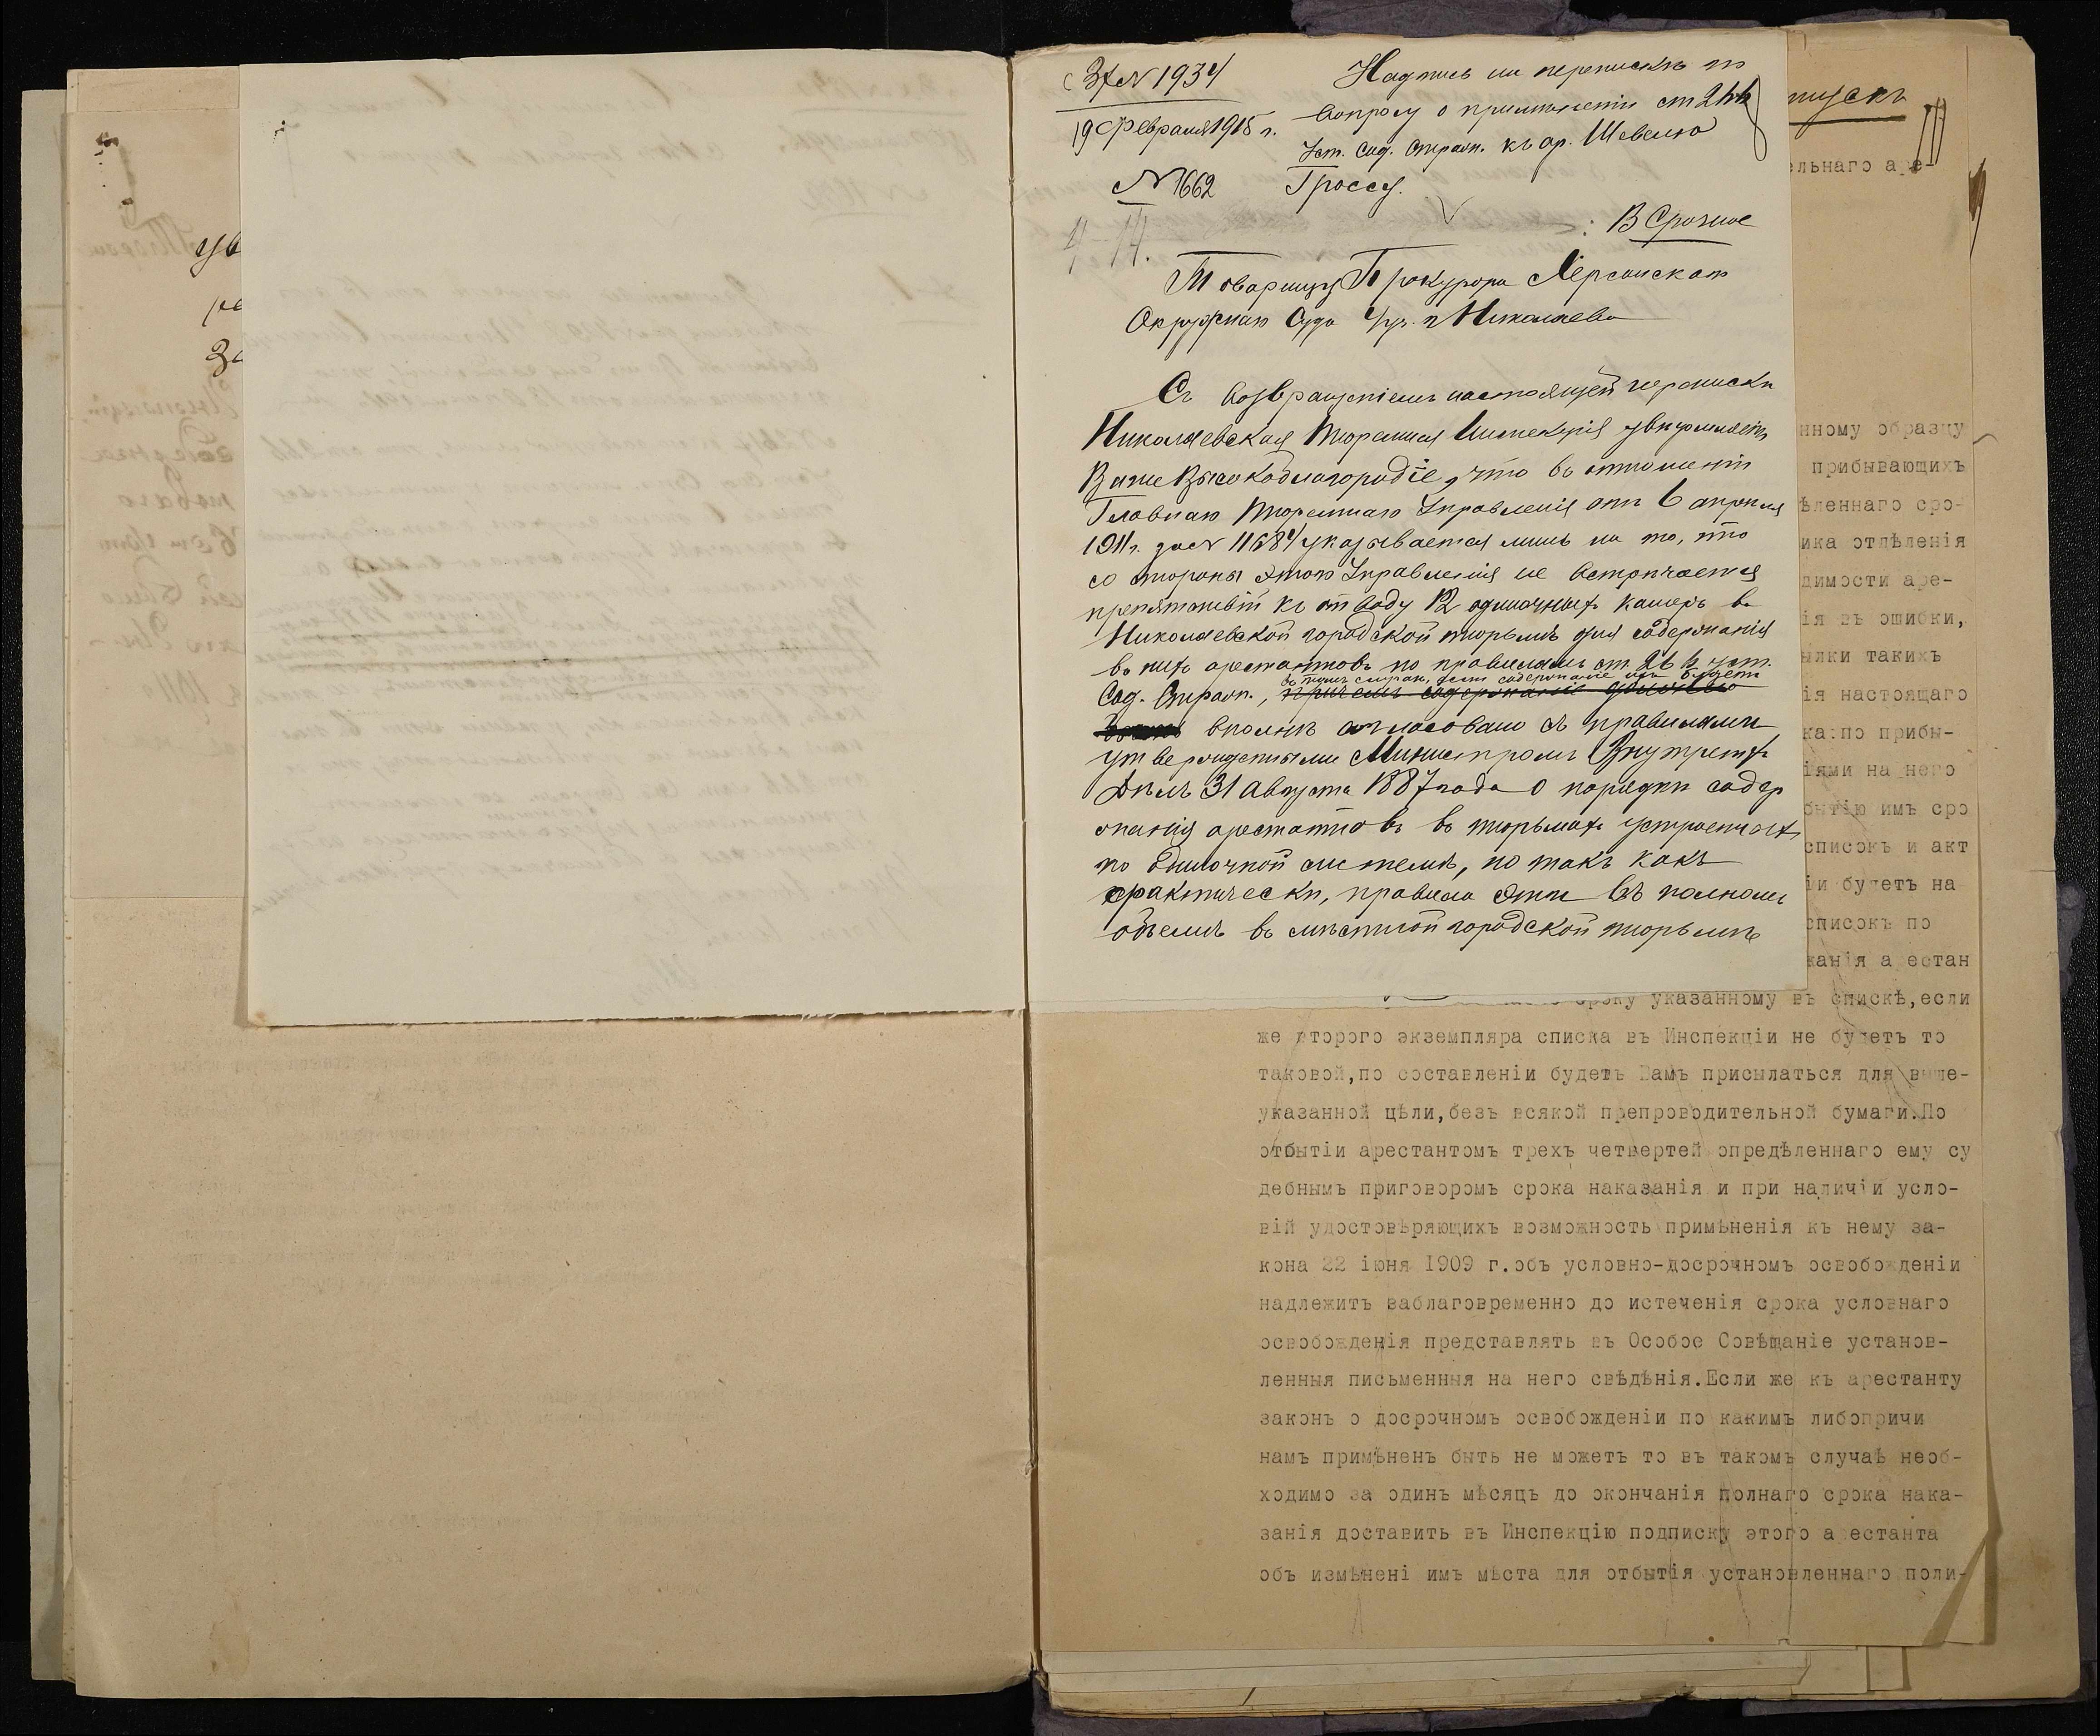 ув
ре
За
З/с № 1934
19 Февраля 1915 г.
№ 1662
Надпись на перепискѣ по
вопросу о примѣненіи ст.
Уст. Сод. Стражн. къ ар. Шевелю
Гроссу.
Срочное
Товарищу Прокурора Херсонскаго
Окружнаго Суда г. Николаева
Съ возвращеніемъ настоящей переписки
Николаевская Тюремная Инспекція увѣдомляетъ
Ваше Высокоблагородіе, что въ отношеніи
Главнаго Тюремнаго Управленія отъ 6 апрѣля
1911 г. за № 11684 указывается лишь на то, что
со стороны этого Управленія не встрѣчается
препятствій къ отводу 12 одиночныхъ камеръ въ
Николаевской городской тюрьмѣ для содержанія
въ нихъ арестантовъ по правиламъ ст. уст.
въ томъ случаѣ, если содержаніе ихъ будетъ
Сод. Стражн., причемъ содержаніе должно
вполнѣ согласовано съ правилами,
утвержденными Министромъ Внутреннихъ
Дѣлъ 31 Августа 1887 года о порядкѣ содер
жанія арестантовъ въ тюрьмахъ устроенныхъ
по одиночной системѣ, но такъ какъ
фактически, правила эти въ полномъ
объемѣ въ мѣстной городской тюрьмѣ
пускъ
ельнаго аре-
нному образцу
прибывающихъ
ѣленнаго сро-
ика отдѣленія
димости аре-
ія въ ошибки,
ылки такихъ
ія настоящаго
ка:по прибы-
іями на него
бытію имъ сро
списокъ и акт
іи будетъ на
списокъ по
жанія арестан
сроку указанному въ спискѣ,если
же второго экземпляра списка въ Инспекціи не будетъ то
таковой,по составленіи будетъ Вамъ присылаться для выше-
указанной цѣли,безъ всякой препроводительной бумаги.По
отбытіи арестантомъ трехъ четвертей опредѣленнаго ему су
дебнымъ приговоромъ срока наказанія и при наличіи усло-
вій удостовѣряющихъ возможность примѣненія къ нему за-
кона 22 іюня 1909 г.объ условно-досрочномъ освобожденіи
надлежитъ заблаговременно до истеченія срока условнаго
освобожденія представлять въ Особое Совѣщаніе установ-
ленныя письменныя на него свѣдѣнія.Если же къ арестанту
законъ о досрочномъ освобожденіи по какимъ либопричи
намъ примѣненъ быть не можетъ то въ такомъ случаѣ необ-
ходимо за одинъ мѣсяцъ до окончанія полнаго срока нака-
занія доставить въ Инспекцію подписку этого арестанта
объ измѣнені имъ мѣста для отбытія установленнаго поли-